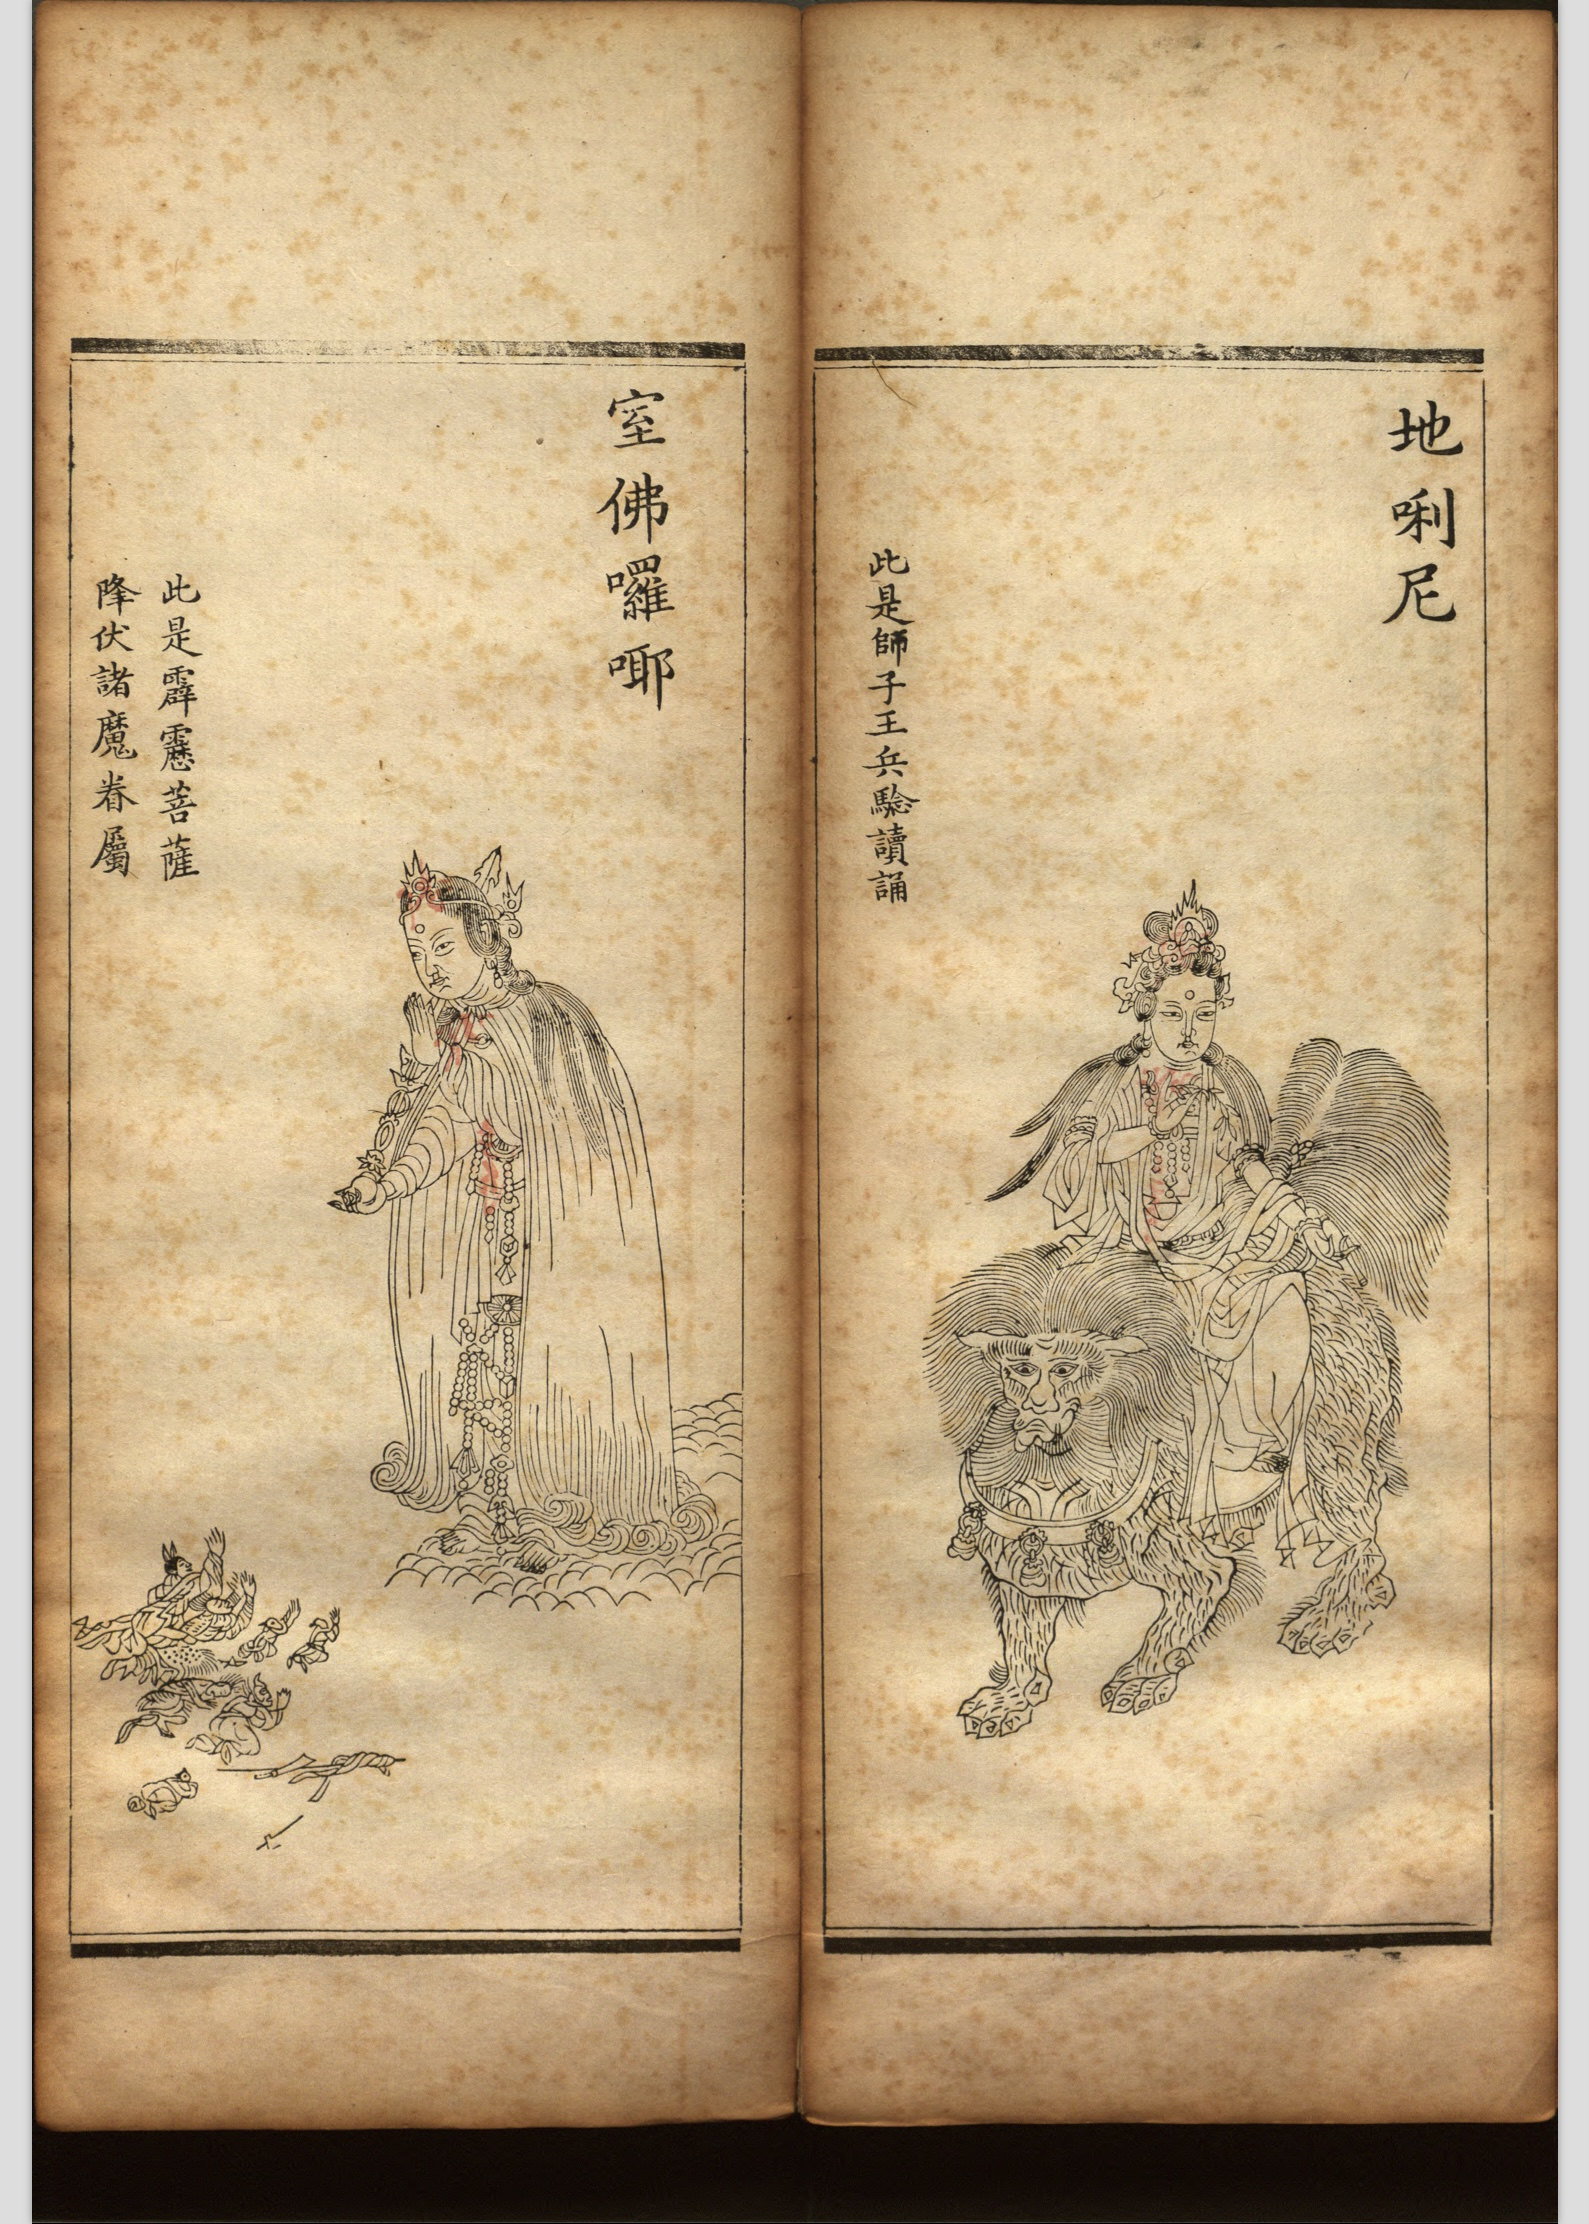 地唎尼
此是師子王兵驗讀誦
室佛囉㖿
此是霹靂菩薩
降伏諸魔眷屬